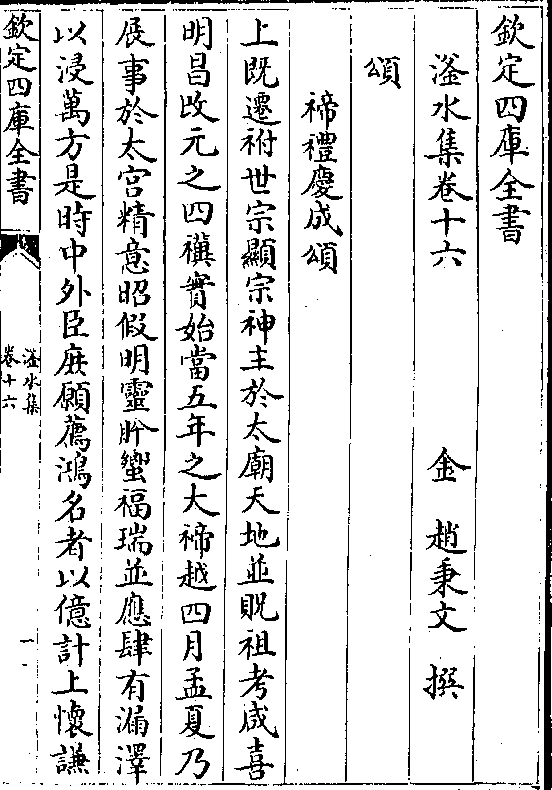 欽定四庫全書
滏水集卷十六
金 趙秉文 撰
頌
禘禮慶成頌
上既遷祔世宗顯宗神主於太廟天地並貺祖考咸喜
明昌改元之四禩實始當五年之大禘越四月孟夏乃
展事於太宮精意昭假明靈肸蠁福瑞並應肆有漏澤
以浸萬方是時中外臣庶願薦鴻名者以億計上懷謙
欽定四庫全書
滏水集
卷十六
一